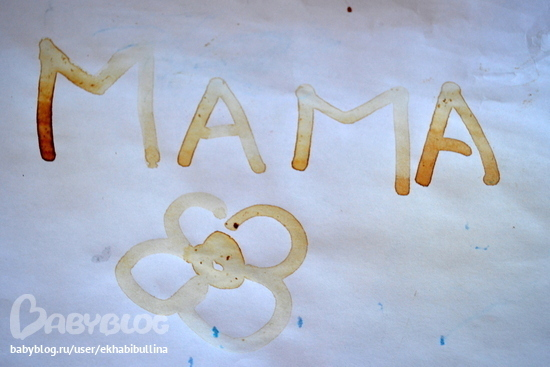 МАМА
BABYBLOG
babyblog.ru/user/ekhabibullina